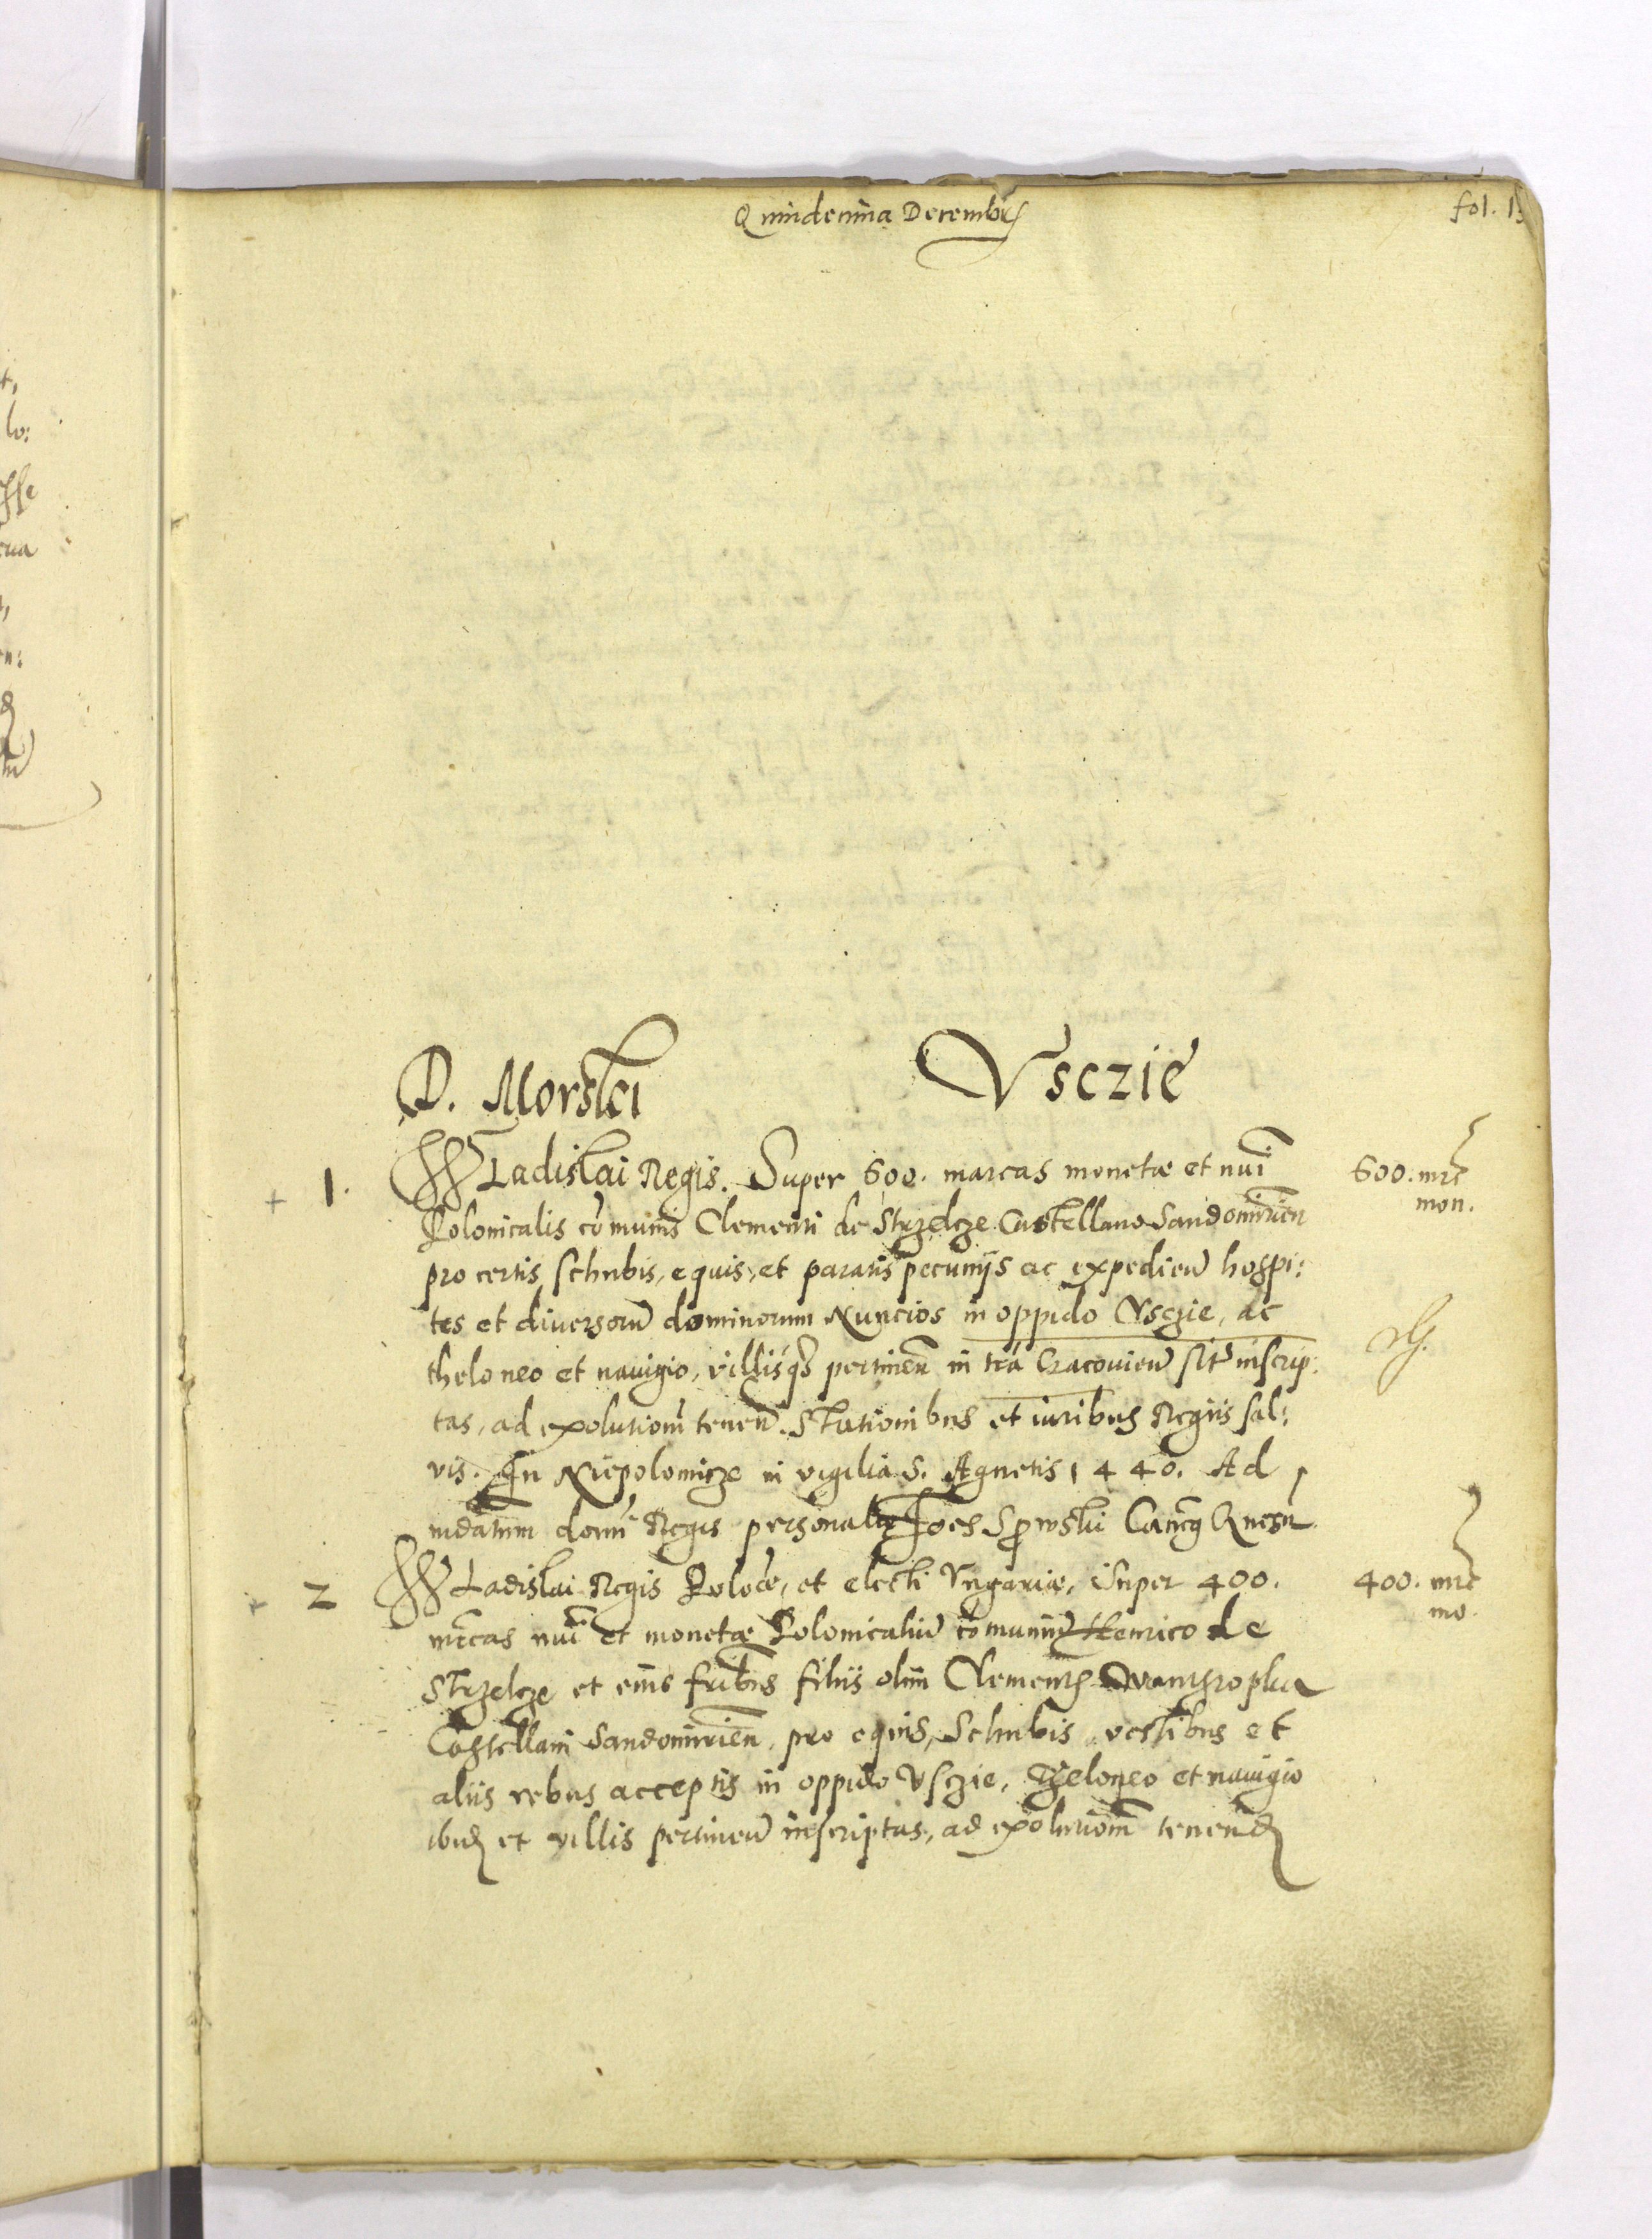 Quindenina Decembris
fol. 13
D. Morski Usczie
+ 1. Wladislai Regis. Super 600. marcas monetæ et nui 600. mrc
Polonicalis comunis Clementi de Strzelcze Castellano Sandomirien mon.
pro certis schubis, equis, et paratis pecunijs ac expedien hospi:
tes et diversoru dominorum Nuncios in oppido Usczie, ac
theloneo et nauigio, villisq pertinen in tra Cracovien sit inscrip:
tas, ad exolutione tenen. Stationibus et iuribus Regiis sal:
vis. In Niepolomicze in vigilia S. Agnetis 1440. Ad
mdatum domi Regis personale Joes Sprowski Canc Gnesn
+ 2 Wladislai Regis Poloæ, et electi Ungariæ, Super 400. 400. mrc
mrcas nui et monetæ Polonicaliu comuniu Henrico de mo.
Strzelcze et eius fribus filiis olim Clementis Wanthropka
Castellani Sandomirien, pro equis, Schubis, vestibus et
aliis rebus acceptis in oppido Usczie, Theloneo et nauigio
ibid et villis pertinen inscriptas, ad exolutiom tenend